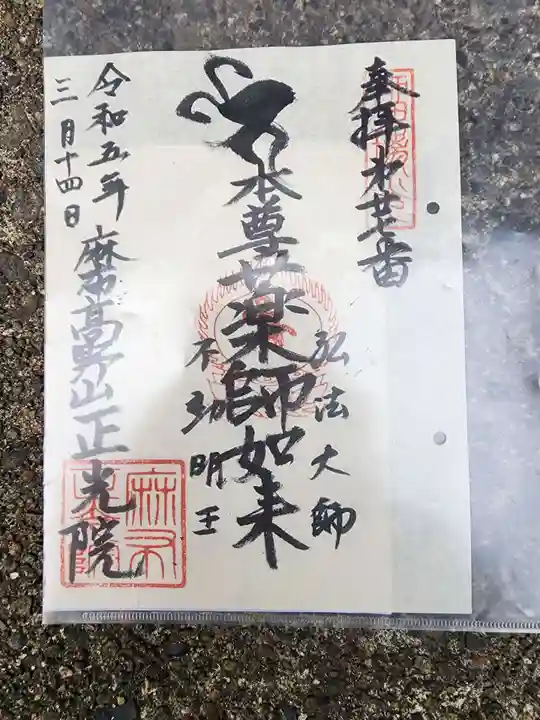 奉拝 第廿番
本尊薬師如来
弘法大師
不動明王
令和五年
三月十四日
麻布高野山正光院